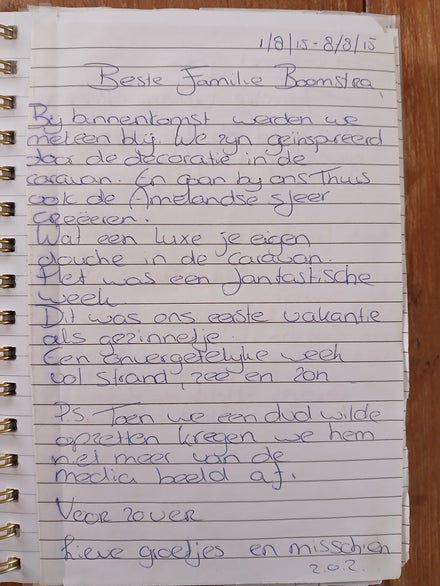 1/8/15 - 8/8/15
Beste Familie Boomstra,
Bij binnenkomst werden we
meteen blij. We zijn geïnspireerd
door de decoratie in de
caravan. En gaan bij ons Thuis
ook de Amelandse sfeer
creëeren.
Wat een luxe je eigen
douche in de caravan.
Het was een fantastische
week.
Dit was ons eerste vakantie
als gezinnetje.
Een onvergetelijke week
vol strand, zee en zon
PS. Toen we een dvd wilde
opzetten kregen we hem
niet meer van de
media beeld af.
Voor zover
Lieve groetjes en misschien
z.o.z.